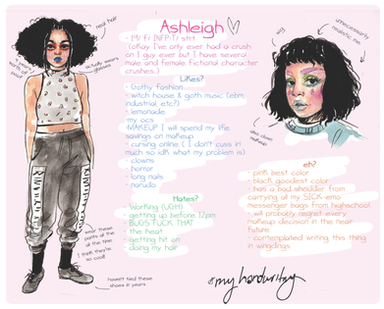 Ashleigh
real hair
actually wears glasses
- 19/ f/ INFP-T/ str8
(okay I've only ever had a crush
on 1 guy ever but I have several
male and female fictional character
crushes.)
Likes?
- Gothy fashion
- witch house & goth music (ebm,
industrial, etc?)
- lemonade
- my ocs
- MAKEUP I will spend my life
savings on makeup
- cursing online ( I don't cuss irl
much so idk what my problem is)
- clowns
- horror
- long nails
- naruto
Hates?
- Working (UGH)
- getting up before 12pm
- BUGS FUCK THAT
- the heat
- getting hit on
- doing my hair
wear these
pants all of the
time
I think they're
so cool!
haven't tied these
shoes in years
wig
unnecessarily
realistic me
also clown
makeup
eh?
- pink best color
- black goodest color
- has a bad shoulder from
carrying all my SICK emo
messenger bags from highschool
- will probably regret every
makeup decision in the near
future
- contemplated writing this thing
in wingdings
my handwriting